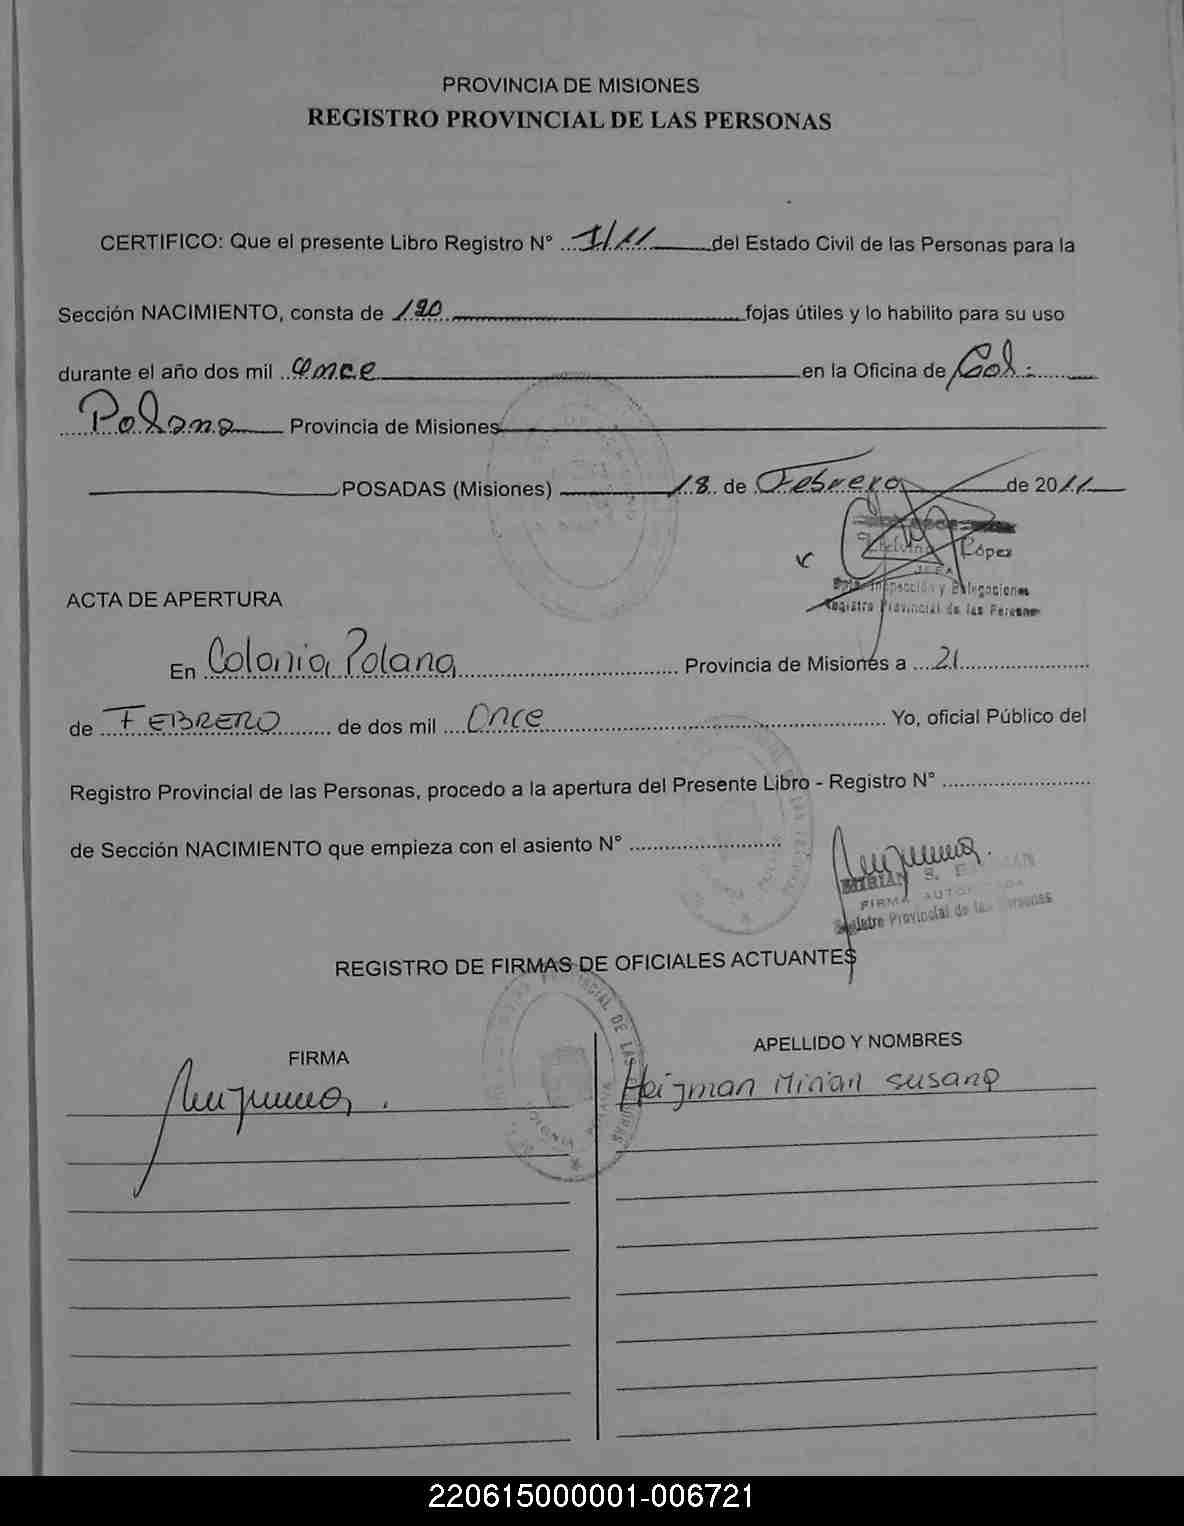 PROVINCIA DE MISIONES
REGISTRO PROVINCIAL DE LAS PERSONAS
CERTIFICO: Que el presente Libro Registro N° 1/11 del Estado Civil de las Personas para la
Sección NACIMIENTO, consta de 190 fojas útiles y lo habilito para su uso
durante el año dos mil once en la Oficina de Col.
Polana Provincia de Misiones
POSADAS (Misiones) 18 de Febrero de 2011
López
JEFA
Inspección y Delegaciones
Registro Provincial de las Personas
ACTA DE APERTURA
En Colonia Polana Provincia de Misiones a 21
de FEBRERO de dos mil Once Yo, oficial Público del
Registro Provincial de las Personas, procedo a la apertura del Presente Libro - Registro N°
de Sección NACIMIENTO que empieza con el asiento N°
MIRIAN S.
FIRMA AUTORIZADA
Registro Provincial de las Personas
REGISTRO DE FIRMAS DE OFICIALES ACTUANTES
FIRMA
APELLIDO Y NOMBRES
Heizman Mirian Susana
PROVINCIAL DE LAS PERSONAS
COLONIA POLANA
220615000001-006721